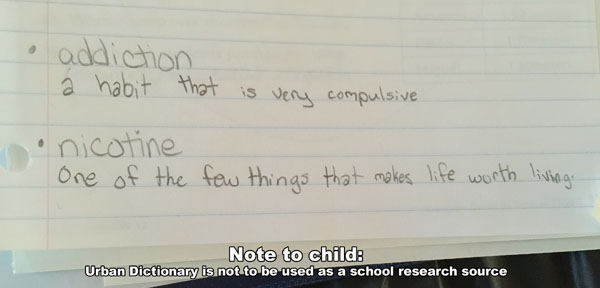 • addiction
a habit that is very compulsive
• nicotine
One of the few things that makes life worth living.
Note to child:
Urban Dictionary is not to be used as a school research source